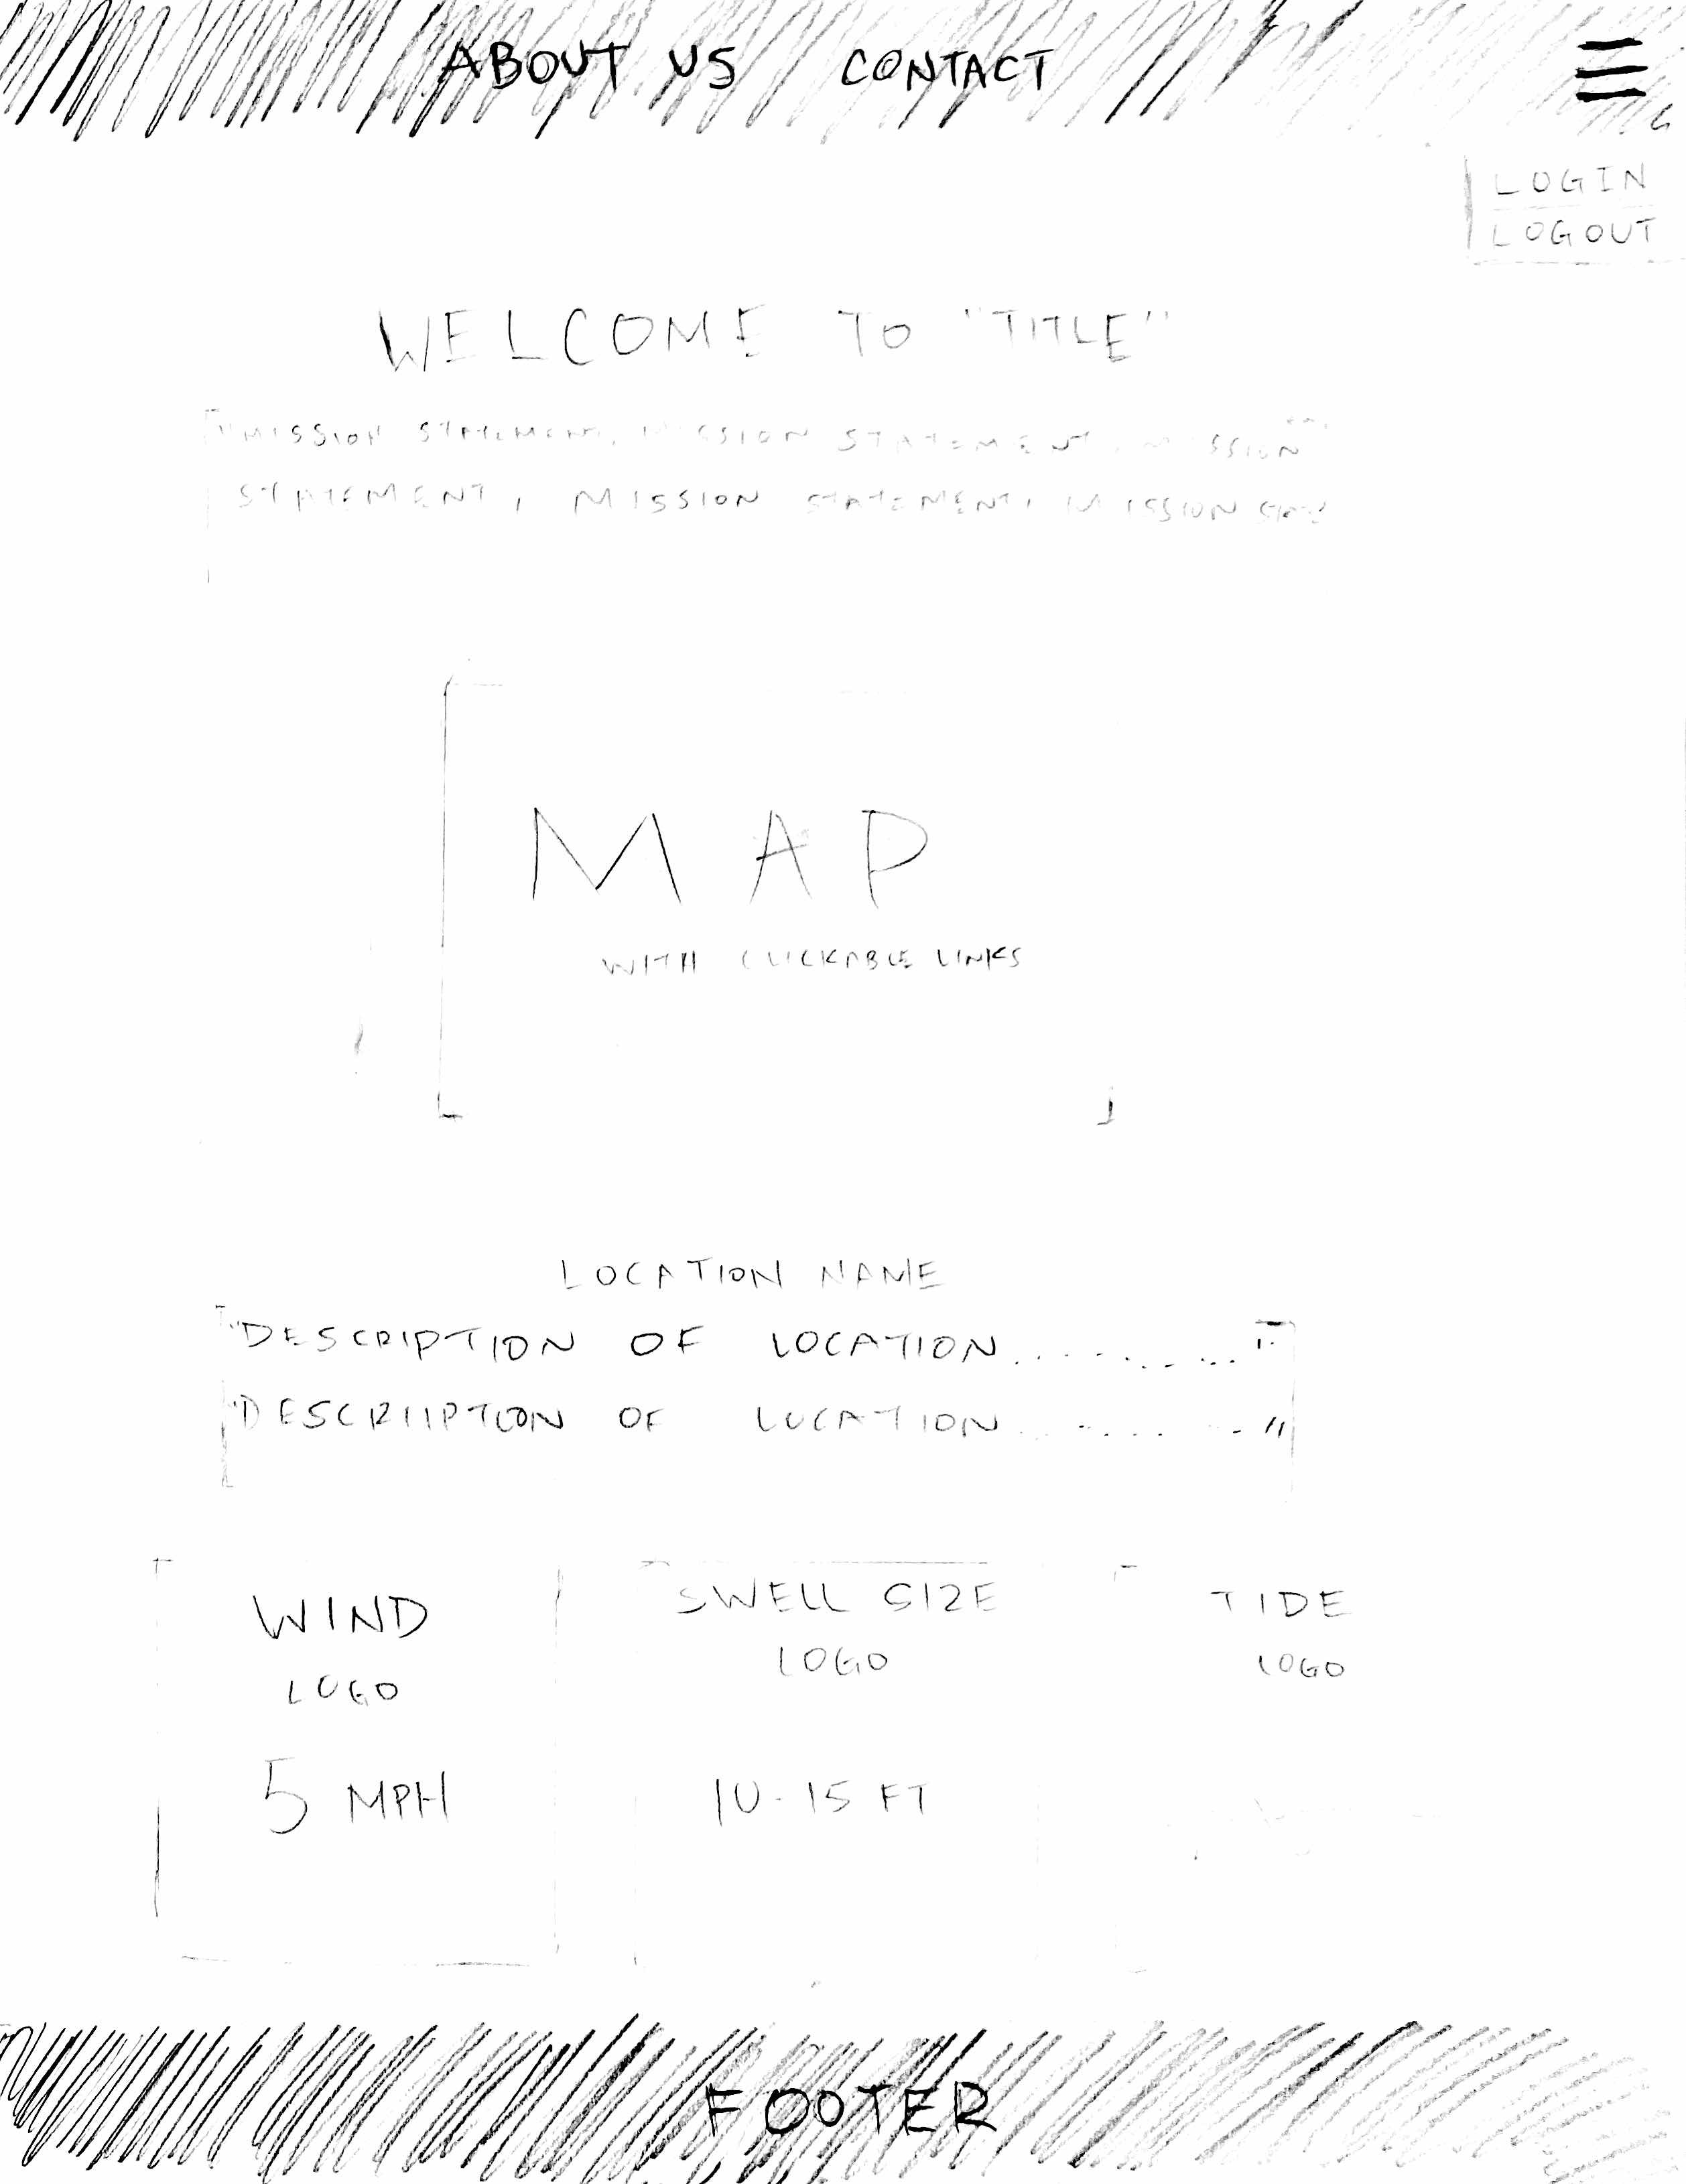 ABOUT US CONTACT
LOGIN
LOGOUT
WELCOME TO "TITLE"
"MISSION STATEMENT, MISSION STATEMENT, MISSION
STATEMENT, MISSION STATEMENT, MISSION
MAP
WITH CLICKABLE LINKS
LOCATION NAME
"DESCRIPTION OF LOCATION.........."
"DESCRIIPTION OF LOCATION.........."
WIND SWELL SIZE TIDE
LOGO LOGO LOGO
5 MPH 10-15 FT
FOOTER